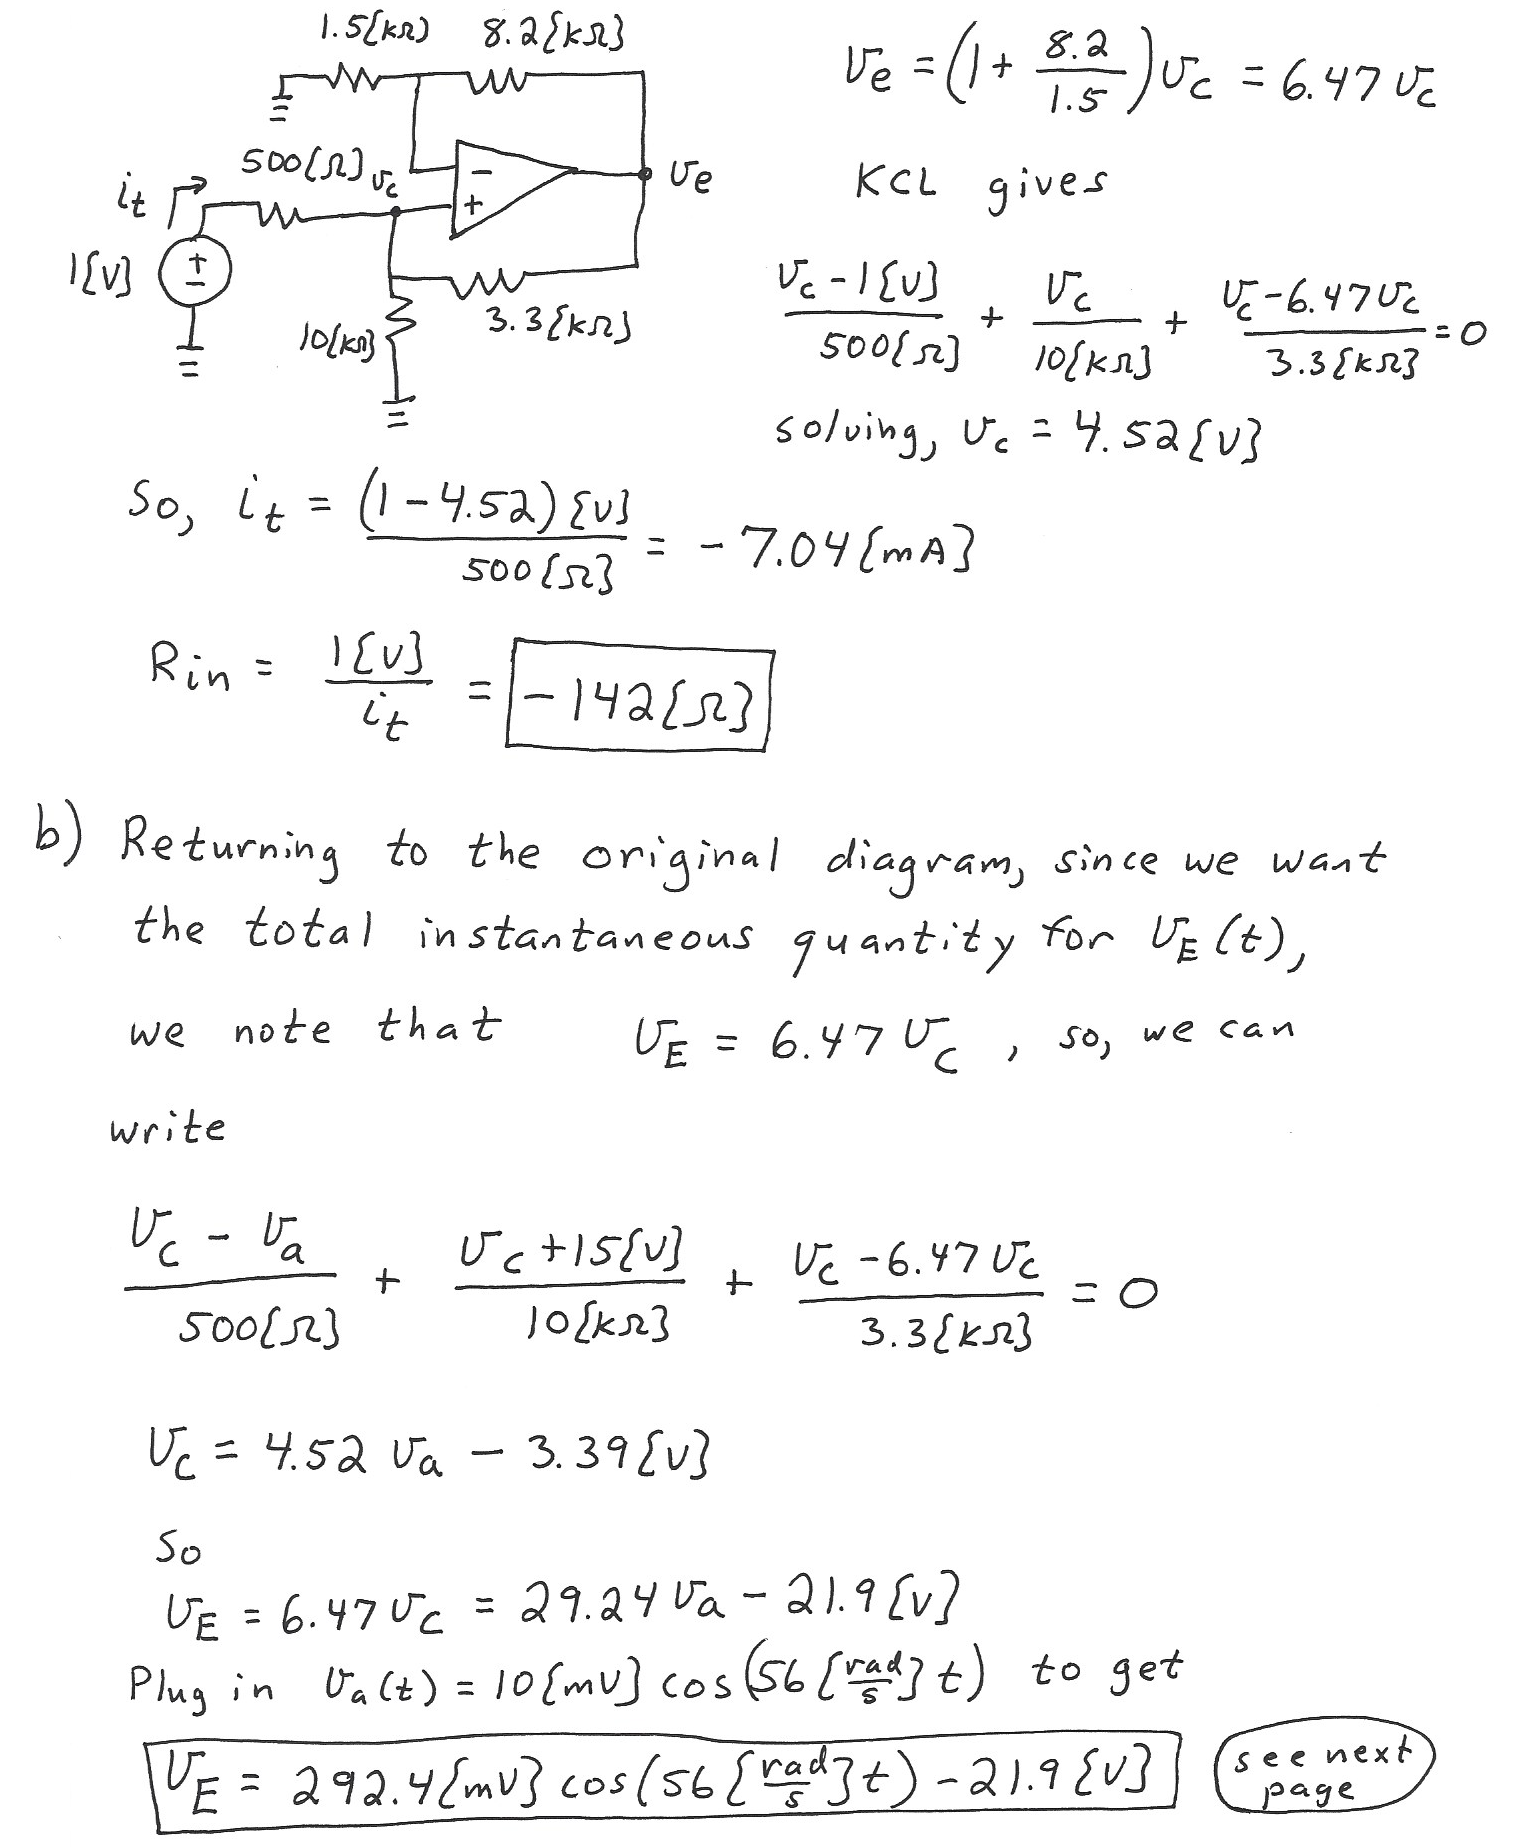 1.5[kΩ] 8.2[kΩ]
500[Ω] v_c
− v_e
i_t +
1[V] + −
10[kΩ] 3.3[kΩ]
v_e = (1 + 8.2/1.5) v_c = 6.47 v_c
KCL gives
(v_c − 1[V])/500[Ω] + v_c/10[kΩ] + (v_c − 6.47 v_c)/3.3[kΩ] = 0
solving, v_c = 4.52[V]
So, i_t = (1 − 4.52)[V]/500[Ω] = −7.04[mA]
Rin = 1[V]/i_t = −142[Ω]
b) Returning to the original diagram, since we want
the total instantaneous quantity for v_E(t),
we note that v_E = 6.47 v_C, so, we can
write
(v_C − v_a)/500[Ω] + (v_C + 15[V])/10[kΩ] + (v_C − 6.47 v_C)/3.3[kΩ] = 0
v_C = 4.52 v_a − 3.39[V]
So
v_E = 6.47 v_C = 29.24 v_a − 21.9[V]
Plug in v_a(t) = 10[mV] cos(56[rad/s]t) to get
v_E = 292.4[mV] cos(56[rad/s]t) − 21.9[V]
see next
page